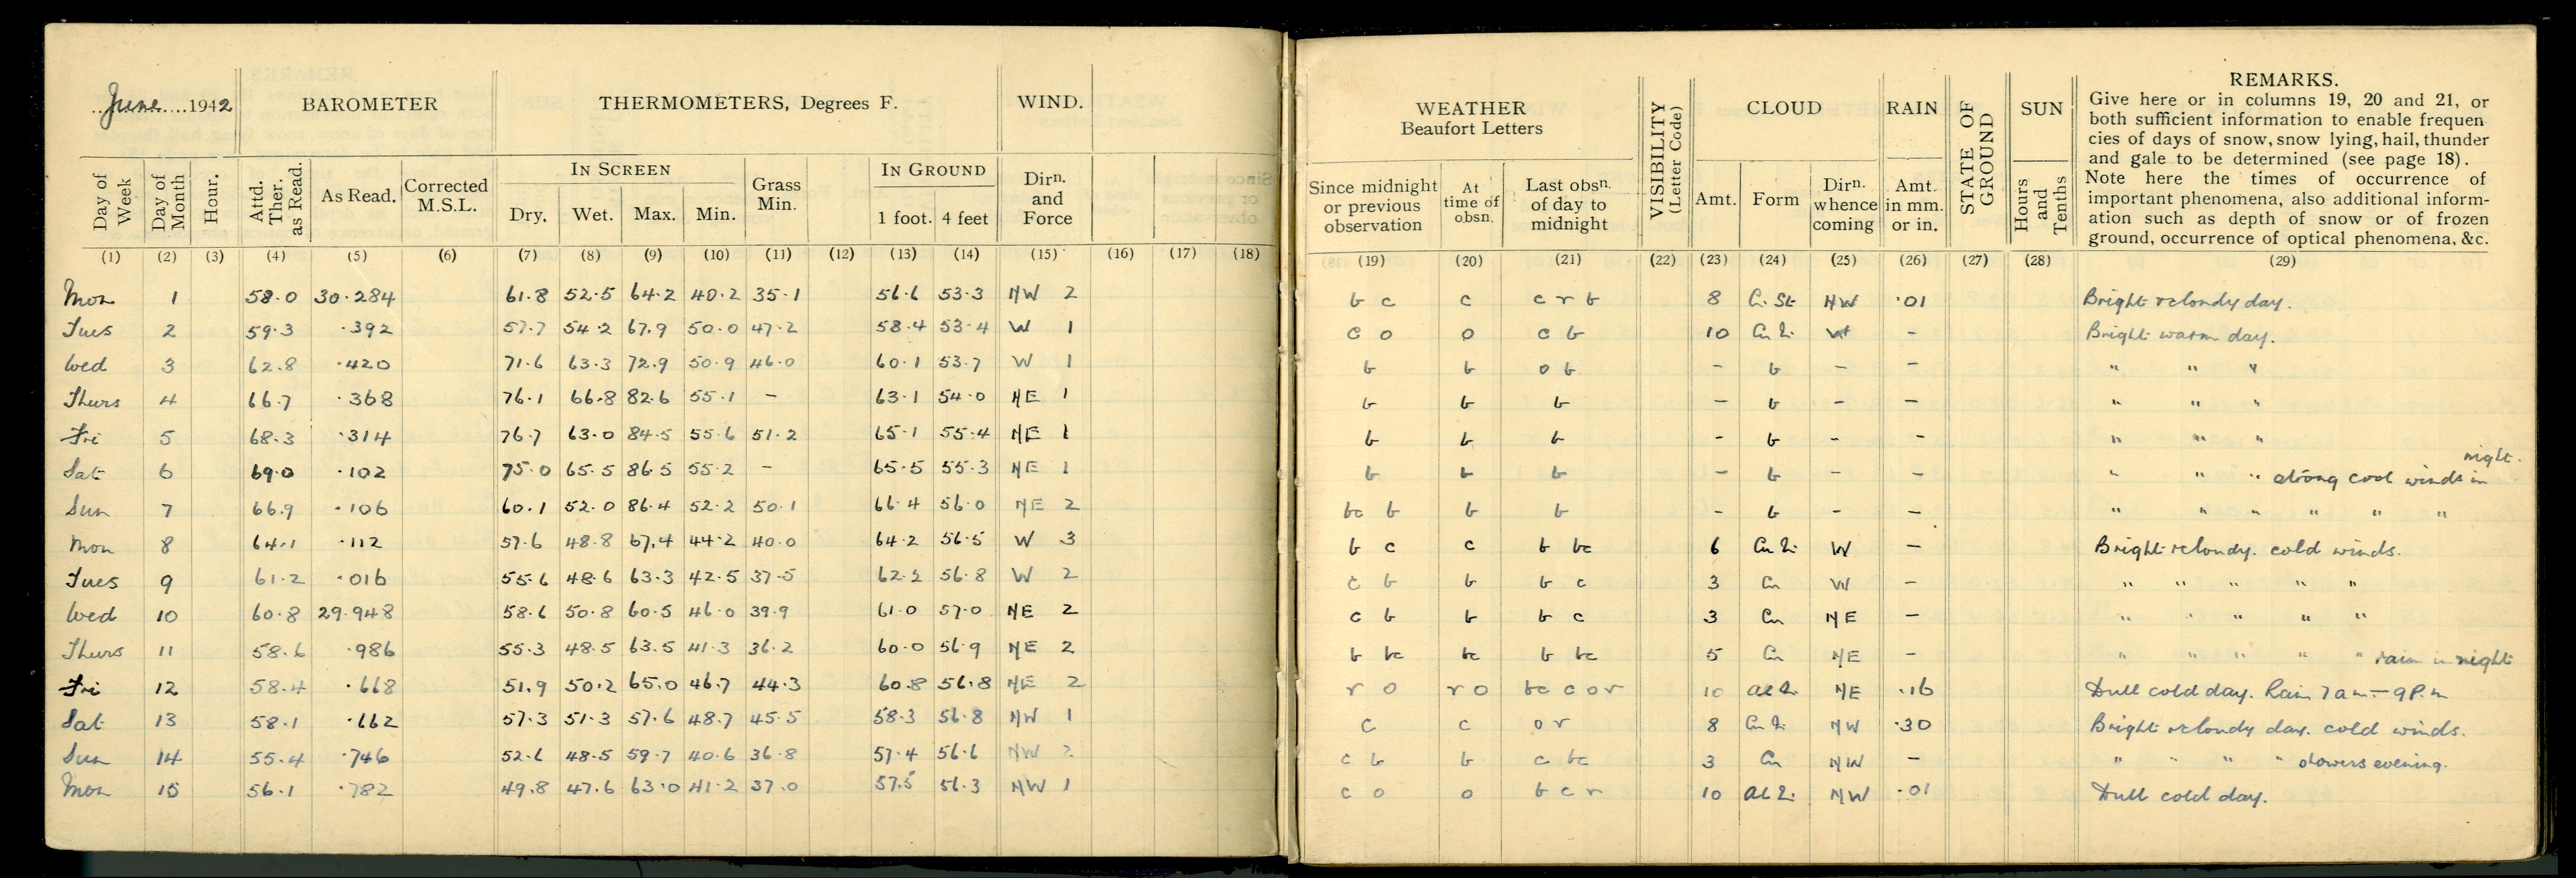 June 1942
BAROMETER
THERMOMETERS, Degrees F.
WIND.
Day of Week
Day of Month
Hour.
Attd. Ther. as Read.
As Read.
Corrected M.S.L.
IN SCREEN
Dry.
Wet.
Max.
Min.
Grass Min.
IN GROUND
1 foot.
4 feet
Dirn. and Force
(1) (2) (3) (4) (5) (6) (7) (8) (9) (10) (11) (12) (13) (14) (15) (16) (17) (18)
Mon 1 58.0 30.284 61.8 52.5 64.2 40.2 35.1 56.6 53.3 NW 2
Tues 2 59.3 .392 57.7 54.2 67.9 50.0 47.2 58.4 53.4 W 1
Wed 3 62.8 .420 71.6 63.3 72.9 50.9 46.0 60.1 53.7 W 1
Thurs 4 66.7 .368 76.1 66.8 82.6 55.1 - 63.1 54.0 NE 1
Fri 5 68.3 .314 76.7 63.0 84.5 55.6 51.2 65.1 55.4 NE 1
Sat 6 69.0 .102 75.0 65.5 86.5 55.2 - 65.5 55.3 NE 1
Sun 7 66.9 .106 60.1 52.0 86.4 52.2 50.1 66.4 56.0 NE 2
Mon 8 64.1 .112 57.6 48.8 67.4 44.2 40.0 64.2 56.5 W 3
Tues 9 61.2 .016 55.6 48.6 63.3 42.5 37.5 62.2 56.8 W 2
Wed 10 60.8 29.948 58.6 50.8 60.5 46.0 39.9 61.0 57.0 NE 2
Thurs 11 58.6 .986 55.3 48.5 63.5 41.3 36.2 60.0 56.9 NE 2
Fri 12 58.4 .668 51.9 50.2 65.0 46.7 44.3 60.8 56.8 NE 2
Sat 13 58.1 .662 57.3 51.3 57.6 48.7 45.5 58.3 56.8 NW 1
Sun 14 55.4 .746 52.6 48.5 59.7 40.6 36.8 57.4 56.6 NW 2
Mon 15 56.1 .782 49.8 47.6 63.0 41.2 37.0 57.5 56.3 NW 1
WEATHER
Beaufort Letters
Since midnight or previous observation
At time of obsn.
Last obsn. of day to midnight
VISIBILITY (Letter Code)
CLOUD
Amt.
Form
Dirn. whence coming
RAIN
Amt. in mm. or in.
STATE OF GROUND
SUN
Hours and Tenths
REMARKS.
Give here or in columns 19, 20 and 21, or
both sufficient information to enable frequen
cies of days of snow, snow lying, hail, thunder
and gale to be determined (see page 18).
Note here the times of occurrence of
important phenomena, also additional inform-
ation such as depth of snow or of frozen
ground, occurrence of optical phenomena, &c.
(19) (20) (21) (22) (23) (24) (25) (26) (27) (28) (29)
b c c c r b 8 Cu. St. NW .01 Bright & cloudy day.
c o o c b 10 W - Bright warm day.
b b o b - b - - " " "
b b b - b - - " " "
b b b - b - - " " "
b b b - b - - " " " strong cool winds in night.
bc b b b - b - - " " " " " "
b c c b bc 6 W - Bright & cloudy. cold winds.
c b b b c 3 Cu W - " " " " "
c b b b c 3 Cu NE - " " " " "
b bc bc b bc 5 Cu NE - " " " " " rain in night
r o r o bc c o r 10 NE .16 Dull cold day. Rain 7am - 9P.m
c c o r 8 NW .30 Bright & cloudy day. cold winds.
c b b c bc 3 Cu NW - " " " " showers evening.
c o o b c r 10 NW .01 Dull cold day.